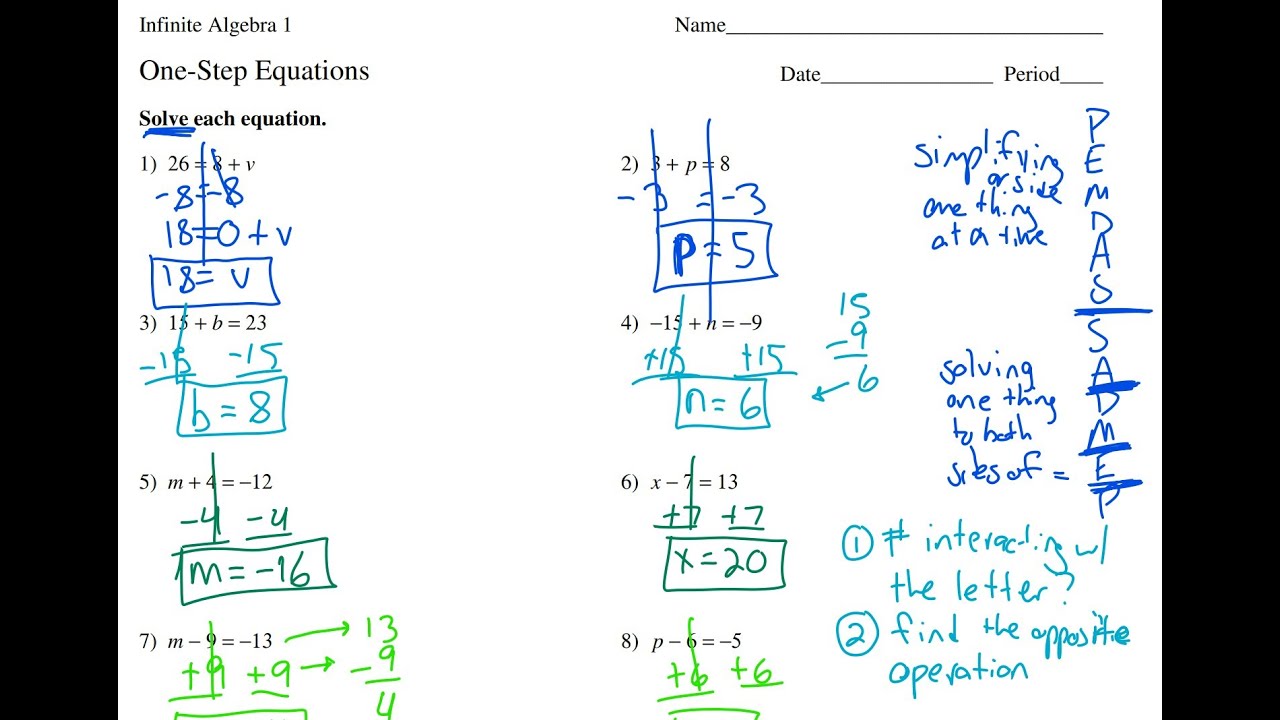 Infinite Algebra 1
Name
One-Step Equations
Date Period
Solve each equation.
1) 26 = 8 + v
-8 = -8
18 = 0 + v
18 = v
2) 3 + p = 8
-3 = -3
p = 5
3) 15 + b = 23
-15 -15
b = 8
4) −15 + n = −9
+15 +15
n = 6
15
-9
6
5) m + 4 = −12
-4 -4
m = -16
6) x − 7 = 13
+7 +7
x = 20
7) m − 9 = −13
+9 +9
13
-9
4
8) p − 6 = −5
+6 +6
simplifying
or side
one thing
at a time
P
E
M
D
A
S
S
A
D
M
E
P
solving
one thing
to both
sides of =
1 # interacting w/
the letter?
2 find the opposite
operation